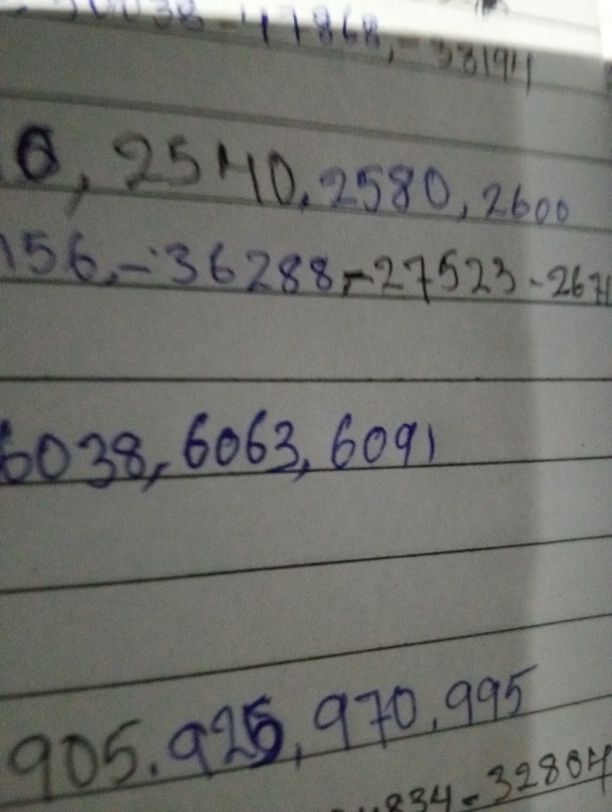 47868, -38194
0, 2540, 2580, 2600
156, -36288, -27523 - 267
6038, 6063, 6091
905, 925, 970, 995
834 - 32804